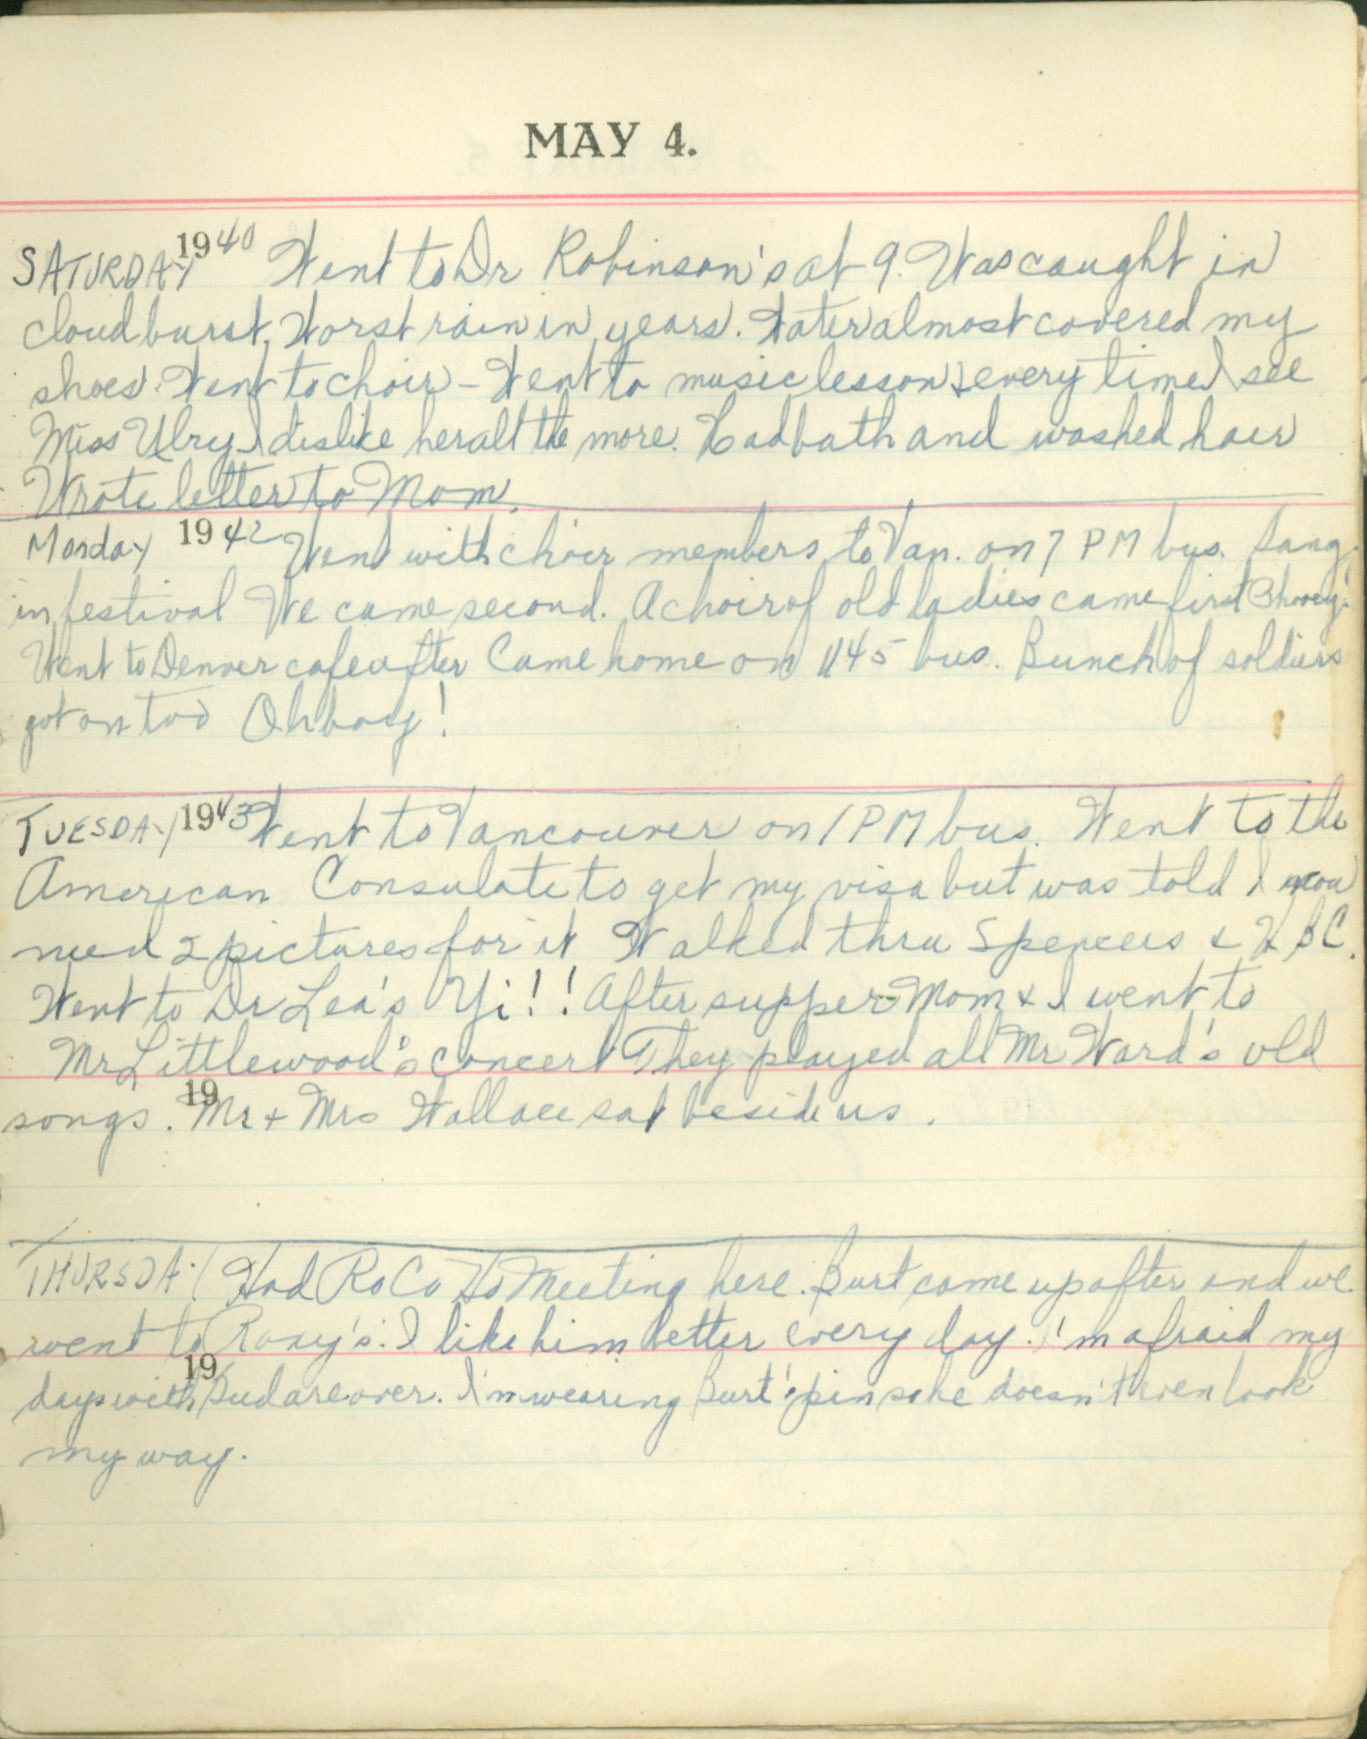 MAY 4.
SATURDAY 1940 Went to Dr Robinson's at 9. Was caught in
cloud burst, Worst rain in years. Water almost covered my
shoes. Went to choir - Went to music lesson & every time I see
Miss Ulry I dislike her all the more. Had bath and washed hair
Wrote letter to Mom.
Monday 1942 Went with choir members to Van. on 7 PM bus. Sang
in festival We came second. A choir of old ladies came first Phooey!
Went to Denver cafe after Came home on 1145 bus. Bunch of soldiers
got on too Oh boy!
TUESDAY 1943 Went to Vancouver on 1 PM bus. Went to the
American Consulate to get my visa but was told I
need 2 pictures for it Walked thru Spencers & HBC.
Went to Dr Lea's Yi!! After supper Mom & I went to
Mr Littlewood's concert They played all Mr Ward's old
songs. 19 Mr & Mrs Wallace sat beside us.
THURSDAY Had Ro Co Ho Meeting here. Burt came up after and we
went to Roxy's. I like him better every day. I'm afraid my
19
days with Bud are over. I'm wearing Burt's pin so he doesn't even look
my way.